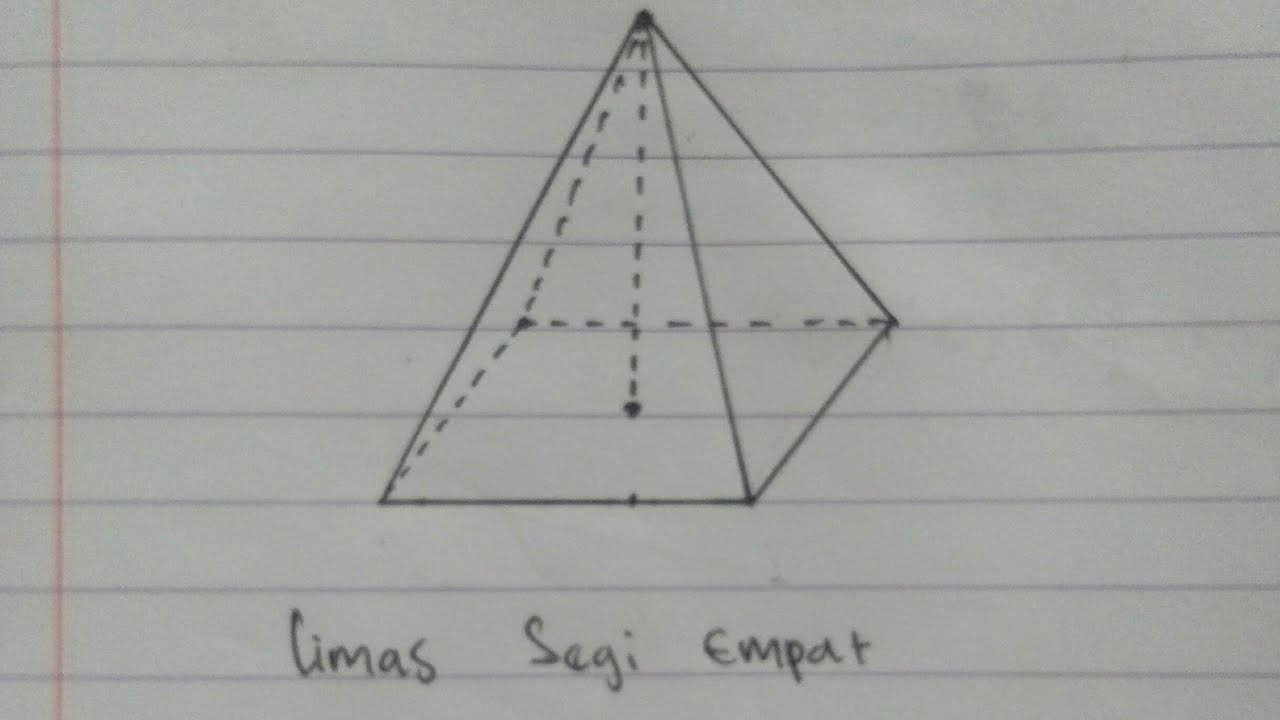 limas Segi Empat